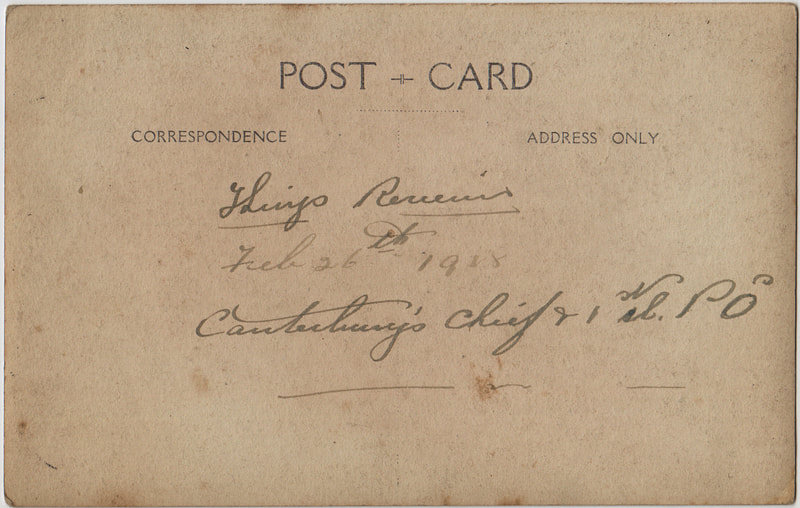 POST CARD
CORRESPONDENCE
ADDRESS ONLY
Kings Review
Feb 26th 1918
Canterbury's Chief & 1 P Os